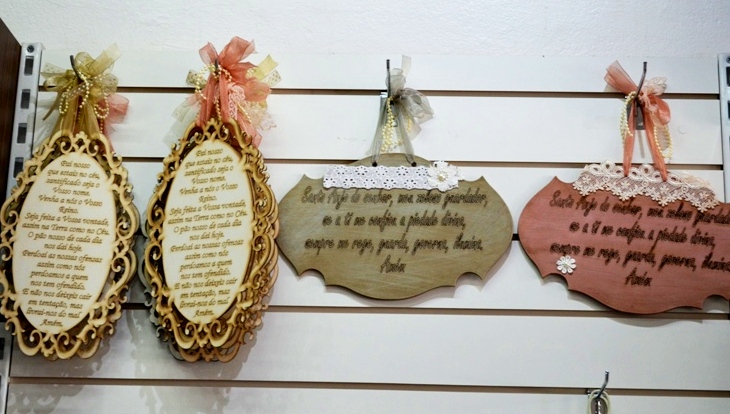 Pai nosso
que estais no céu,
santificado seja o
Vosso nome.
Venha a nós o Vosso
Reino.
Seja feita a Vossa vontade,
assim na Terra como no Céu.
O pão nosso de cada dia
nos daí hoje.
Perdoai as nossas ofensas
assim como nós
perdoamos a quem
nos tem ofendido.
E não nos deixeis cair
em tentação, mas
livrai-nos do mal
Amém.
Pai nosso
que estais no céu,
santificado seja o
Vosso nome.
Venha a nós o Vosso
Reino.
Seja feita a Vossa vontade,
assim na Terra como no Céu.
O pão nosso de cada dia
nos daí hoje.
Perdoai as nossas ofensas
assim como nós
perdoamos a quem
nos tem ofendido.
E não nos deixeis cair
em tentação, mas
livrai-nos do mal
Amém.
Santo Anjo do senhor, meu zeloso guardador,
se a ti me confiou a piedade divina,
sempre me rege, guarda, governa, ilumina.
Amém
Santo Anjo do senhor, meu zeloso guardador,
se a ti me confiou a piedade divina,
sempre me rege, guarda, governa,
Amém